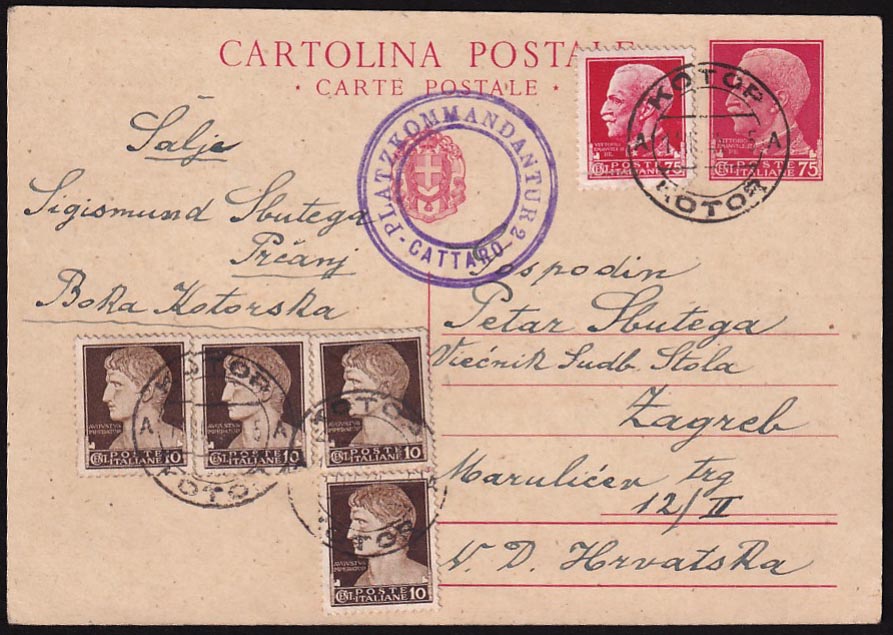 CARTOLINA POSTALE
· CARTE POSTALE ·
Šalje
Sigismund Sbutega
Prčanj
Boka Kotorska
PLATZKOMMANDANTUR 2
- CATTARO -
VITTORIO EMANUELE III RE
POSTE ITALIANE
CENT. 75
VITTORIO EMANUELE III RE
POSTE ITALIANE
CENT. 75
KOTOR
A A
KOTOR
Gospodin
Petar Sbutega
Viećnik Sudb. Stola
Zagreb
Marulićev trg
12/II
N. D. Hrvatska
AVGVSTVS IMPERATOR
CENT. POSTE ITALIANE 10
AVGVSTVS IMPERATOR
CENT. POSTE ITALIANE 10
POSTE ITALIANE 10
KOTOR
A A
KOTOR
KOTOR
KOTOR
AVGVSTVS IMPERATOR
CENT. POSTE ITALIANE 10